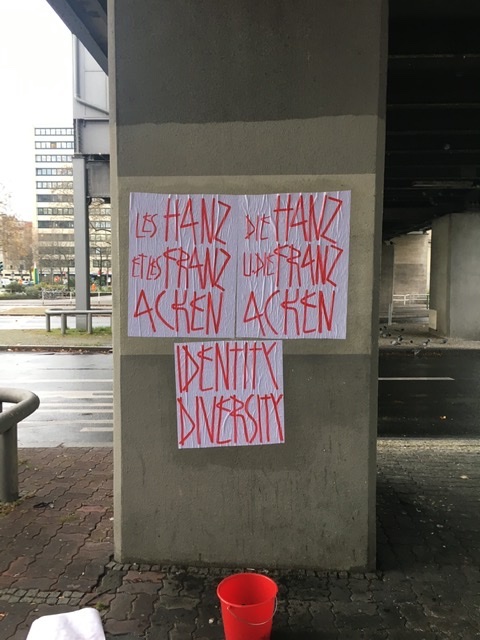 LES HANZ
ET LES FRANZ
ACKEN
DIE HANZ
U. DIE FRANZ
ACKEN
IDENTITY
DIVERSITY